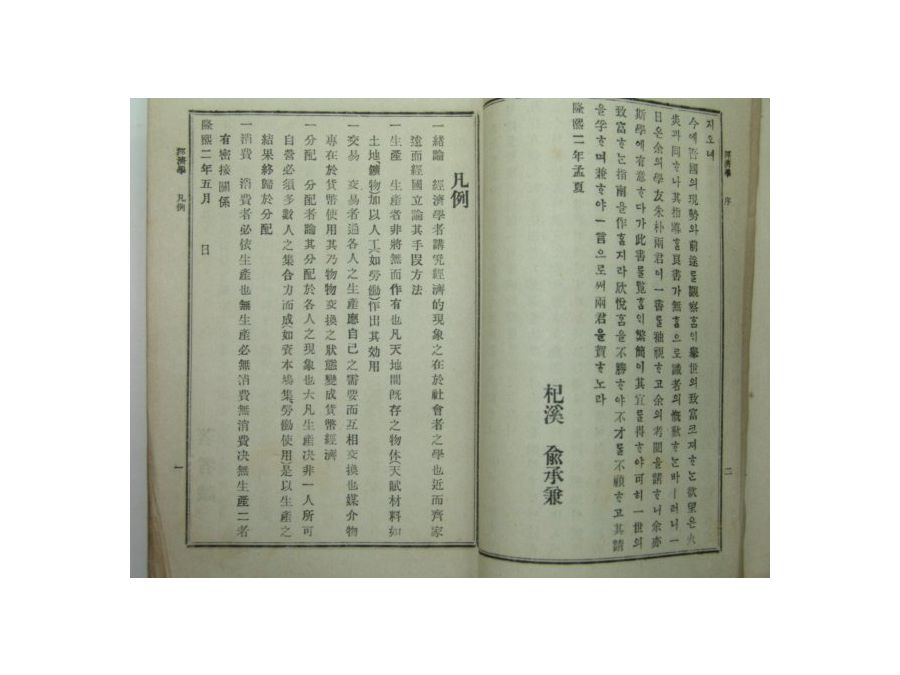 經濟學 序 二
지오녀
今에 吾國의 現勢와 前途를 觀察홈이 擧世의 致富코져ᄒᆞᄂᆞᆫ 欲望은 火
炎과 同ᄒᆞ나 其指導ᄒᆞᆯ 良書가 無홈으로 識者의 慨歎ᄒᆞᄂᆞᆫ바ㅣ러니 一
日은 余의 學友朱朴兩君이 一書를 袖視ᄒᆞ고 余의 考閱을 請ᄒᆞ니 余亦
斯學에 有意ᄒᆞ다가 此書를 覽홈이 繁簡이 其宜를 得ᄒᆞ야 可히 一世의
致富ᄒᆞᄂᆞᆫ 指南을 作ᄒᆞᆯ지라 欣悅홈을 不勝ᄒᆞ야 不才를 不顧ᄒᆞ고 其請
을 學ᄒᆞ며 兼ᄒᆞ야 一言으로써 兩君을 賀ᄒᆞ노라
隆熙二年孟夏
杞溪 兪承兼
凡例
一緖論 經濟學者講究經濟的現象之在於社會者之學也近而齊家
遠而經國立論其手段方法
一生產 生產者非將無而作有也凡天地間既存之物休(天賦材料如
土地、鑛物)加以人工(如勞働)作出其効用
一交易 交易者通各人之生產應自己之需要而互相交換也媒介物
專在於貨幣使用其乃物物交換之狀態變成貨幣經濟
一分配 分配者論其分配於各人之現象也大凡生產决非一人所可
自營必須多數人之集合力而成(如資本鳩集、勞働使用)是以生產之
結果終歸於分配
一消費 消費者必依生產也無生產必無消費無消費决無生產二者
有密接關係
隆熙二年五月 日
經濟學 凡例 一